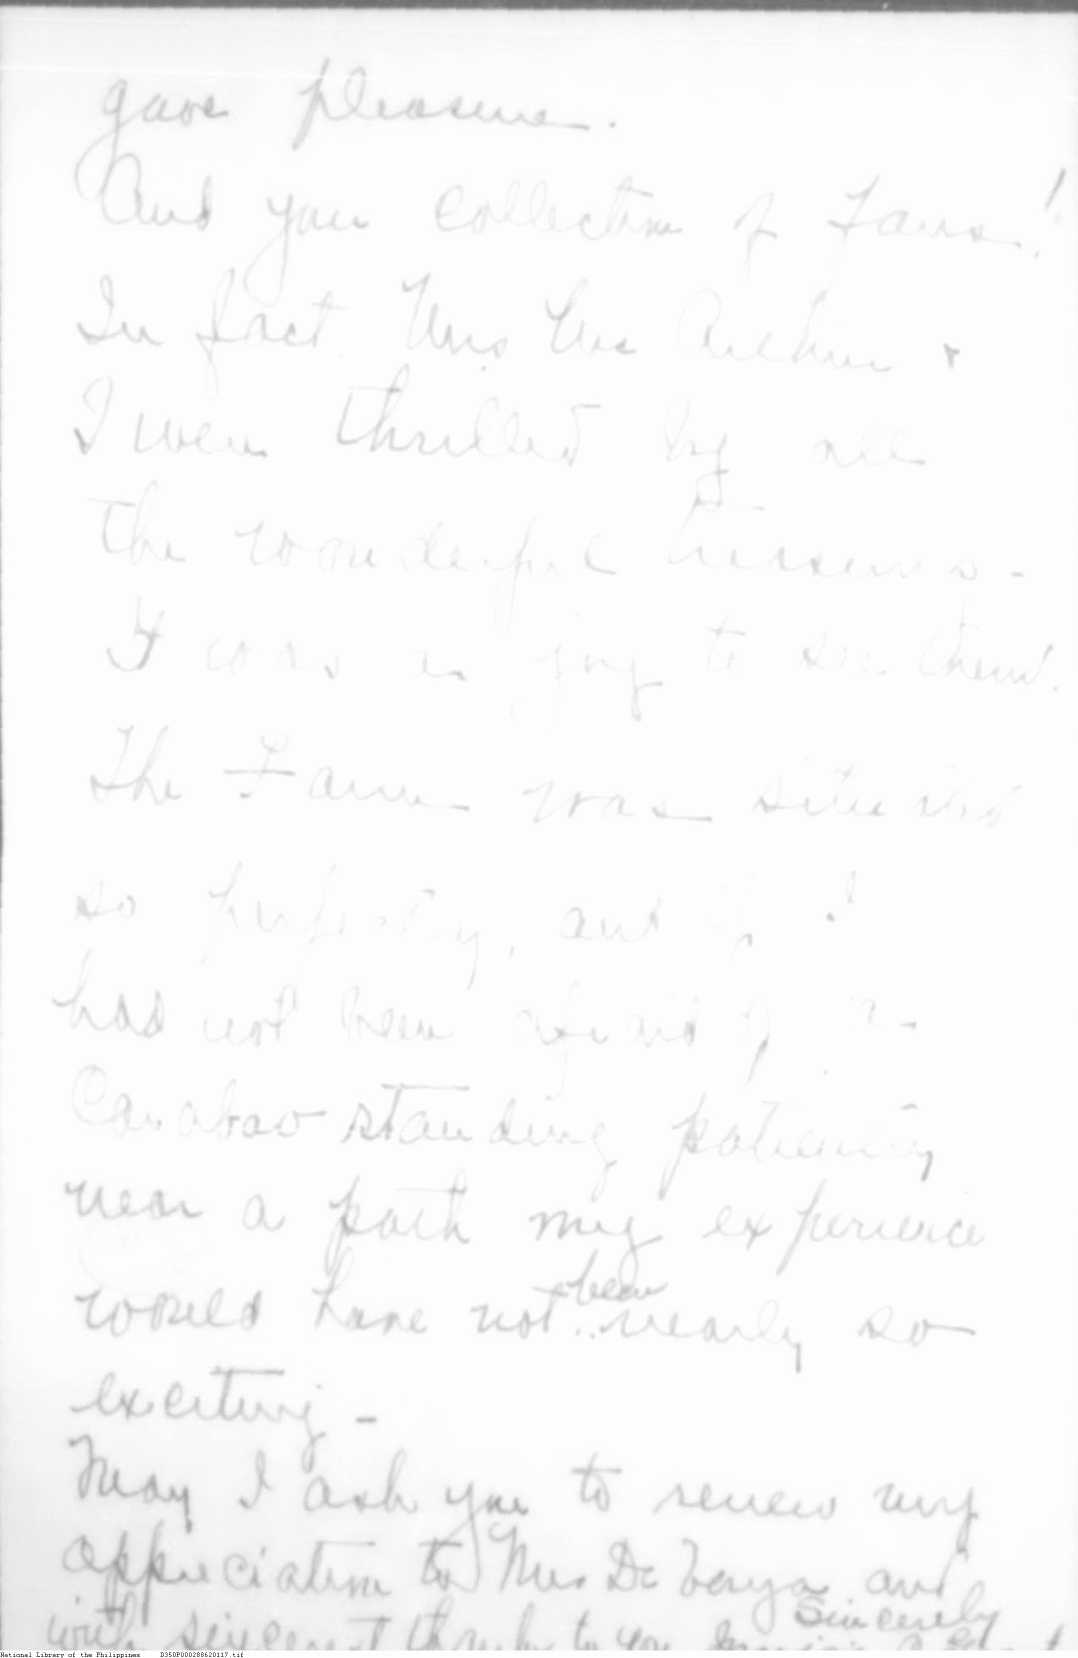 gave pleasure.
And your collection of Fans!
In fact Mrs. Mc Arthur &
I were thrilled by all
the wonderful treasures -
It was a joy to see them!
The Farm was situated
so perfectly, and if I
had not been afraid of a
Carabao standing patiently
near a path my experience
would have not been nearly so
exciting -
May I ask you to renew my
appreciation to Mrs De Veyra and
with sincerest thanks to you
Sincerely
National Library of the Philippines D350P000288620117.tif